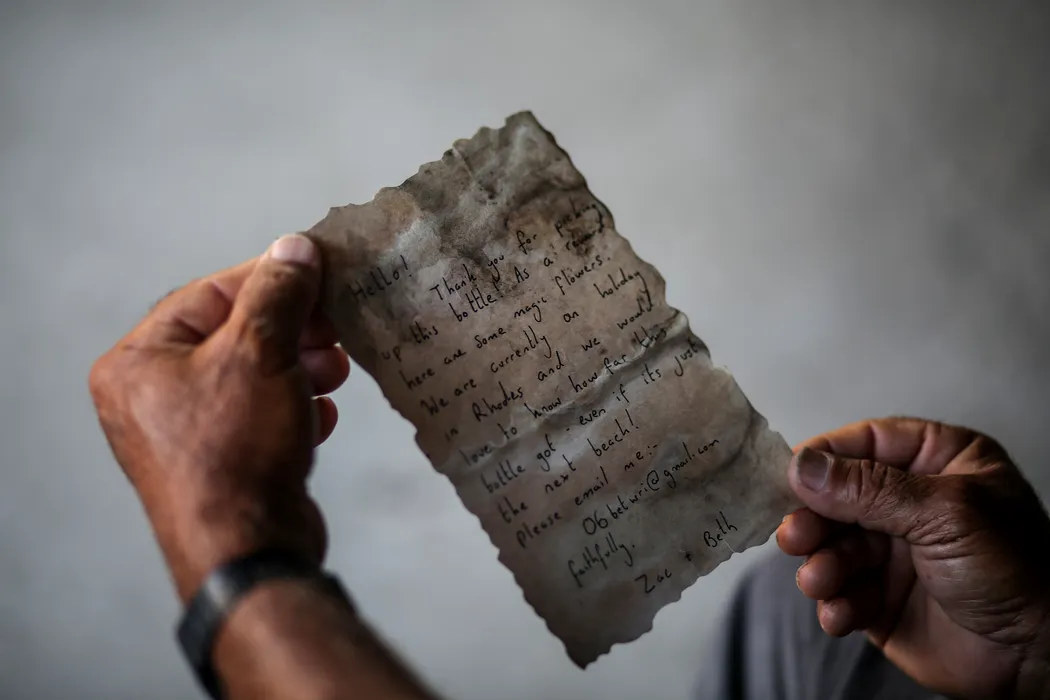 Hello!
Thank you for picking
up this bottle! As a reward
here are some magic flowers.
We are currently on holiday
in Rhodes and we would
love to know how far this
bottle got - even if its just
the next beach!
Please email me:-
06betwri@gmail.com
faithfully.
Zac + Beth